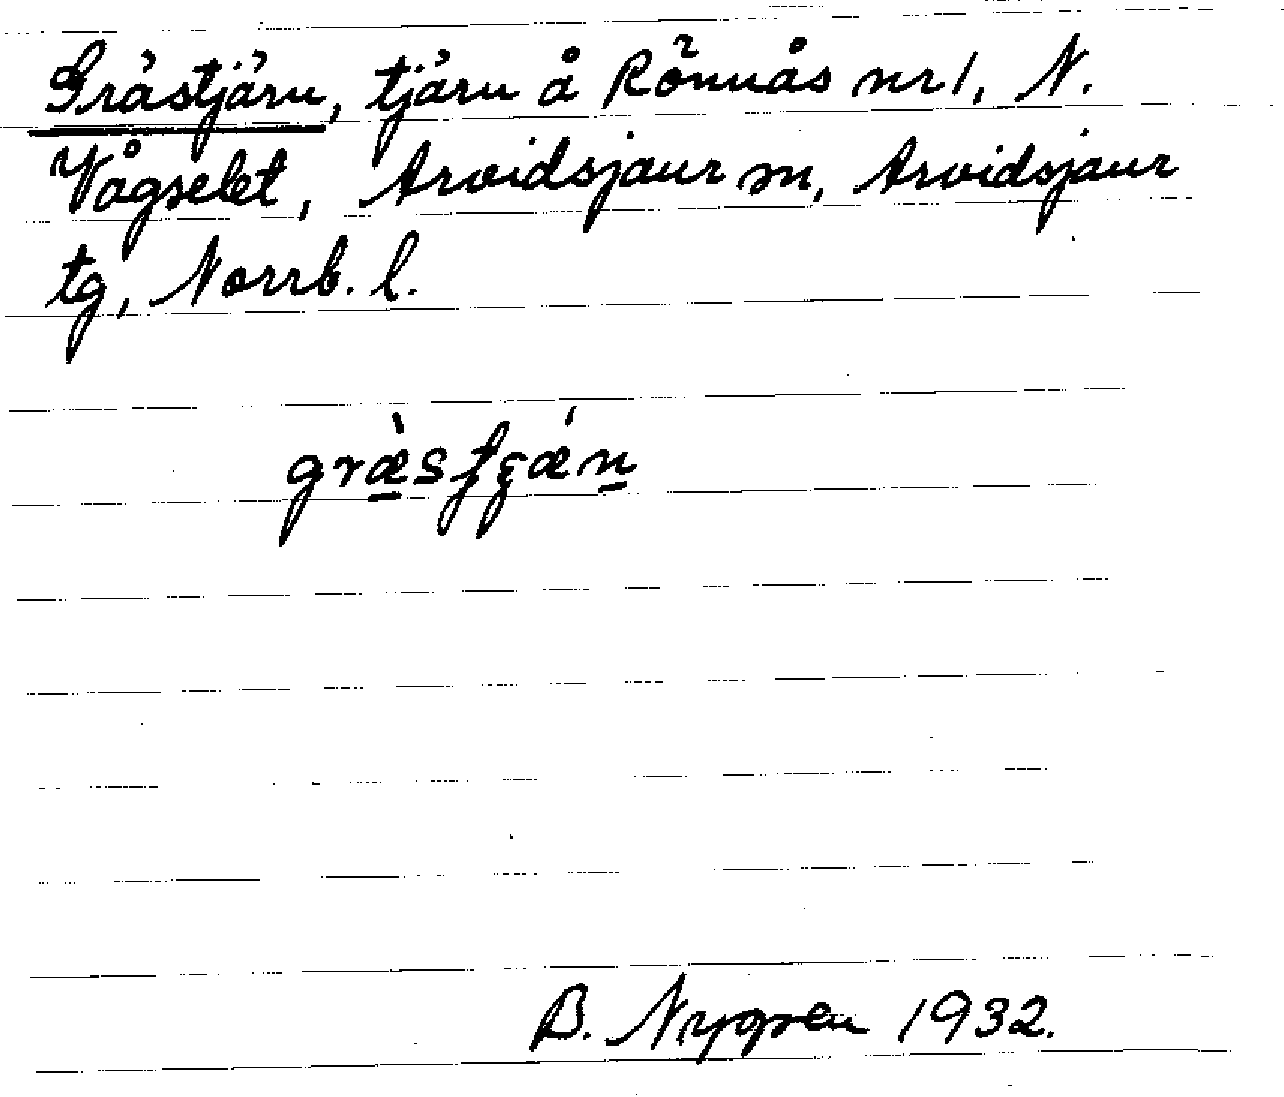 Grästjärn, tjärn å Rönnås nr 1, N.
Vågselet, Arvidsjaur sn, Arvidsjaur
tg, Norrb. l.
græ̀sʃçǽn
B. Nygren 1932.